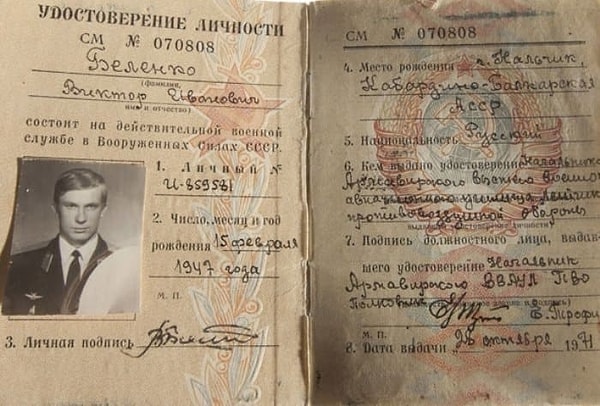 УДОСТОВЕРЕНИЕ ЛИЧНОСТИ
СМ № 070808
Беленко
(фамилия,
Виктор Иванович
имя и отчество)
состоит на действительной военной
службе в Вооруженных Силах СССР.
1. Личный №
И-859581
2. Число, месяц и год
рождения 15 февраля
1947 года
М. П.
3. Личная подпись
СМ № 070808
4. Место рождения г. Нальчик,
Кабардино-Балкарская
АССР
5. Национальность Русский
6. Кем выдано удостоверение Начальником
Армавирского высшего военного
авиационного училища лётчиков
противовоздушной обороны
7. Подпись должностного лица, выдав-
шего удостоверение Начальник
Армавирского ВВАУЛ ПВО
полковник
М. П.
8. Дата выдачи 26 октября 1971